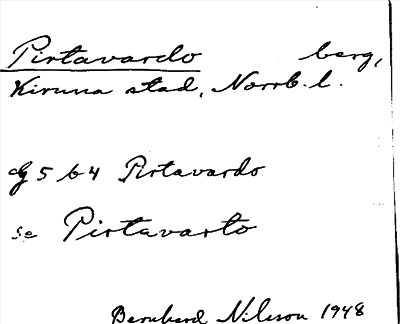 Pirtavardo berg,
Kiruna stad, Norrb. l.
5 b 4 Pirtavardo
se Pirtavarto
Bernhard Nilsson 1948